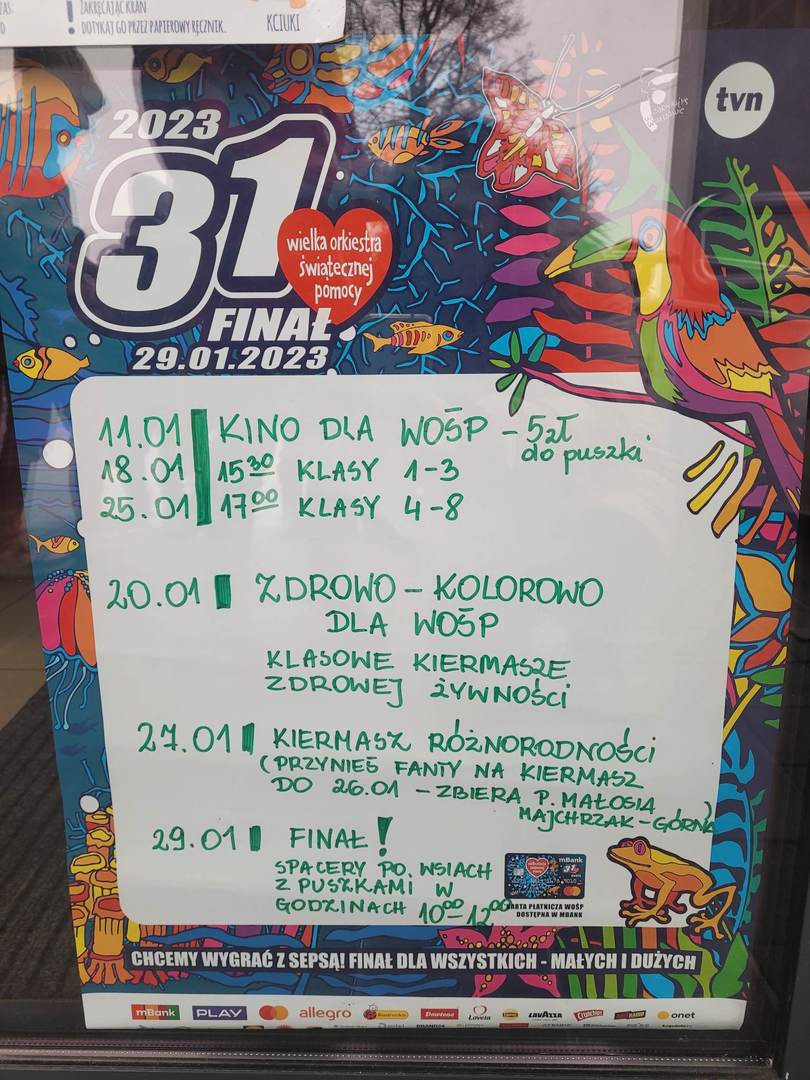 ZAKRĘCAJĄC KRAN
DOTYKAJ GO PRZEZ PAPIEROWY RĘCZNIK.
KCIUKI
tvn
2023
31
wielka orkiestra
świątecznej
pomocy
FINAŁ
29.01.2023
11.01 KINO DLA WOŚP - 5zł
do puszki
18.01 15³⁰ KLASY 1-3
25.01 17⁰⁰ KLASY 4-8
20.01 ZDROWO - KOLOROWO
DLA WOŚP
KLASOWE KIERMASZE
ZDROWEJ ŻYWNOŚCI
27.01 KIERMASZ RÓŻNORODNOŚCI
(PRZYNIEŚ FANTY NA KIERMASZ
DO 26.01 - ZBIERA P. MAŁOSIA
MAJCHRZAK-GÓRNA)
29.01 FINAŁ!
SPACERY PO WSIACH
Z PUSZKAMI W
GODZINACH 10⁰⁰-12⁰⁰
mBank
KARTA PŁATNICZA WOŚP
DOSTĘPNA W MBANK
CHCEMY WYGRAĆ Z SEPSĄ! FINAŁ DLA WSZYSTKICH - MAŁYCH I DUŻYCH
mBank PLAY allegro Biedronka Dawtona Loveta LAVAZZA onet